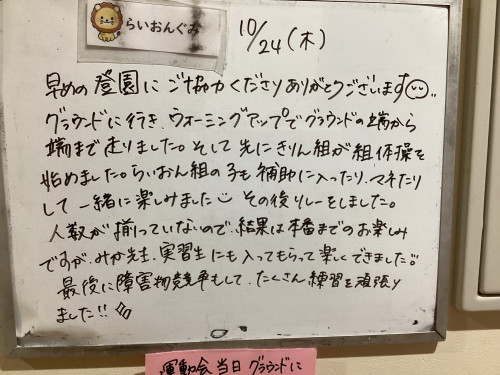 らいおんぐみ
10/24(木)
早めの登園にご協力くださりありがとうございます
グラウンドに行き、ウォーミングアップでグラウンドの端から
端まで走りました。そして先にきりん組が組体操を
始めました。らいおん組の子も補助に入ったり、マネたり
して一緒に楽しみました その後リレーをしました。
人数が揃っていないので、結果は本番までのお楽しみ
ですが、みか先生、実習生にも入ってもらって楽しくできました!!
最後に障害物競争もして、たくさん練習を頑張り
ました!!
運動会当日 グラウンドに